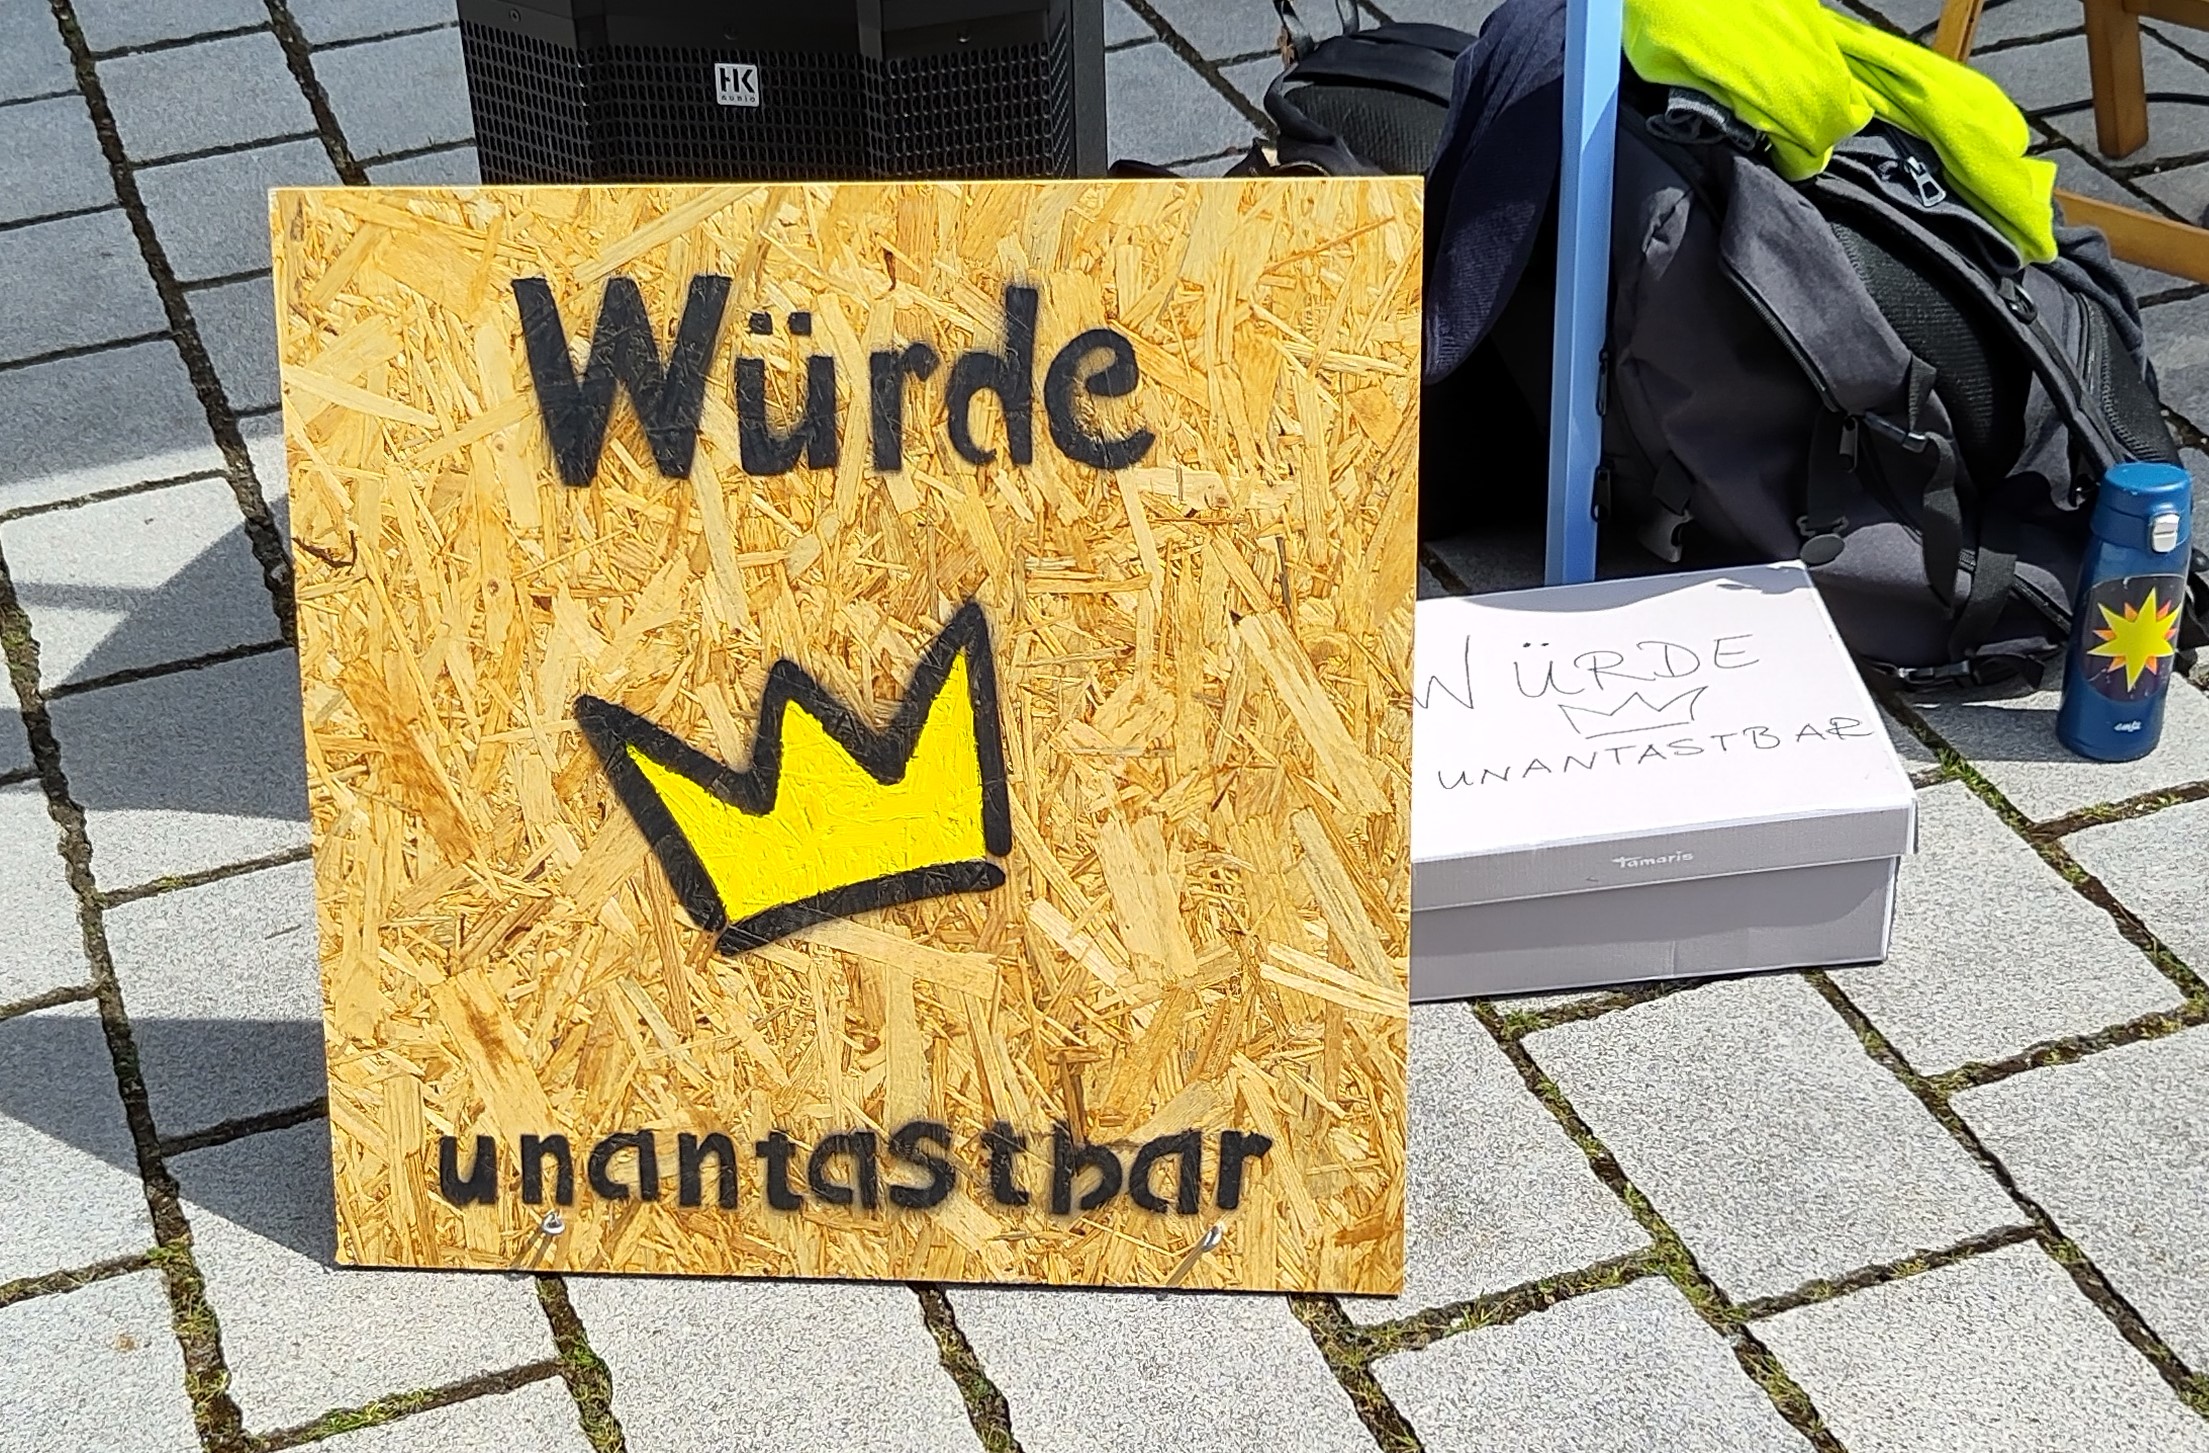 HK
AUDIO
Würde
unantastbar
WÜRDE
UNANTASTBAR
Tamaris
emsa